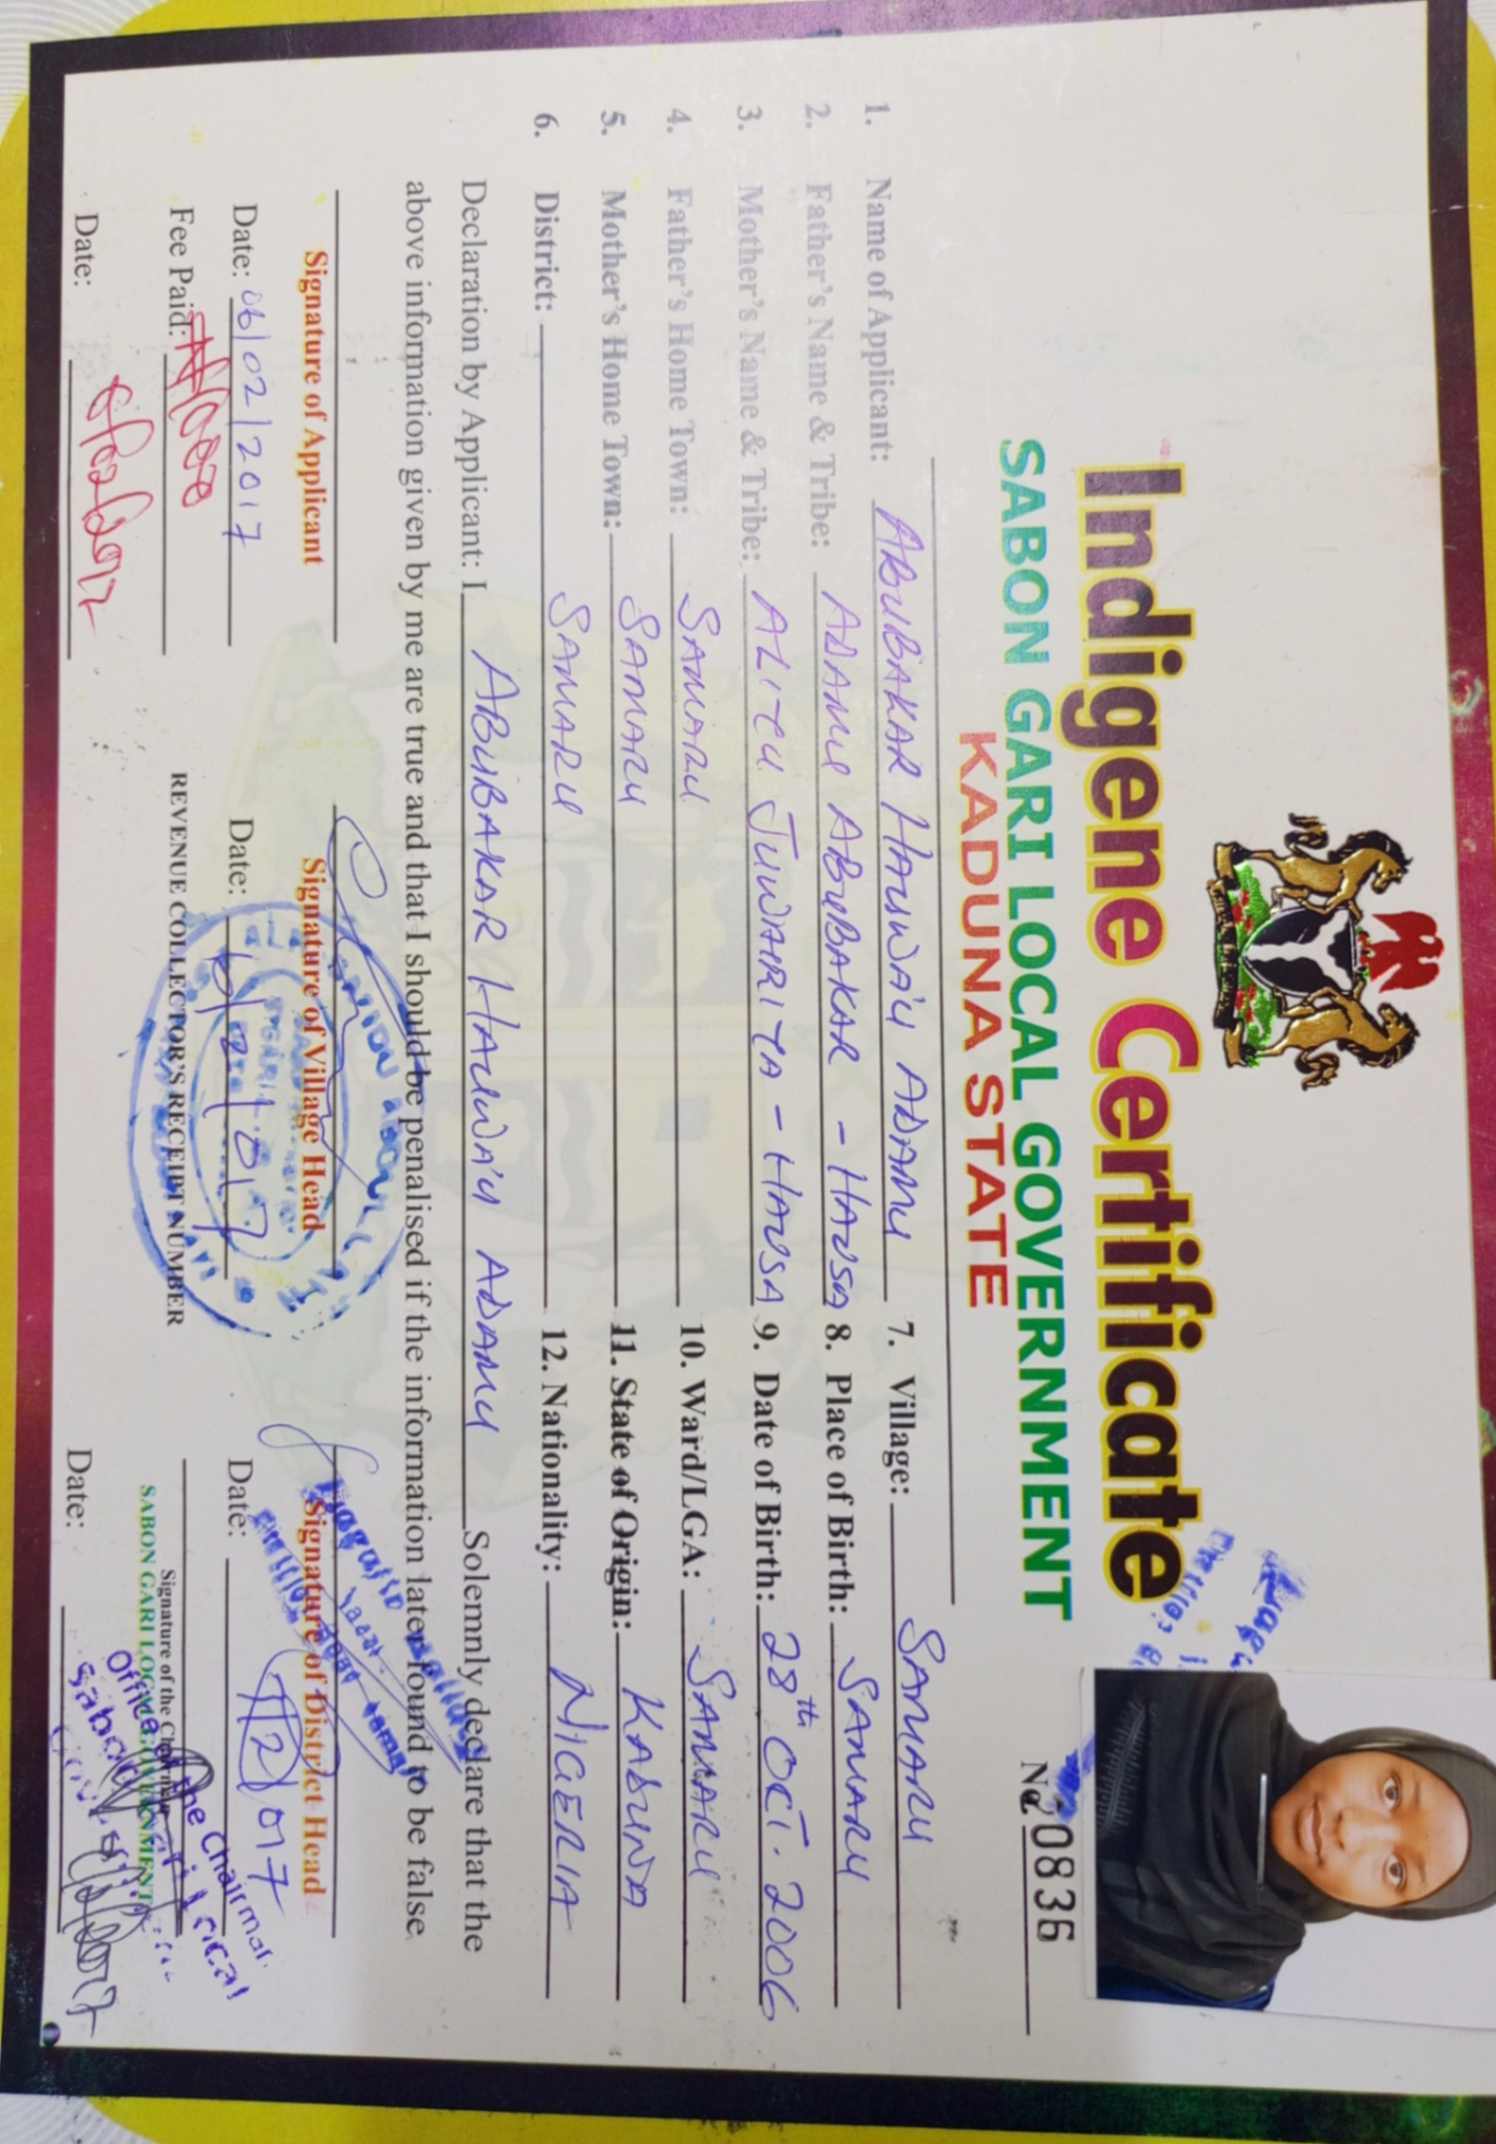 Indigene Certificate
SABON GARI LOCAL GOVERNMENT
KADUNA STATE
No. 20836
1. Name of Applicant: ABUBAKAR HAUWA'U ADAMU
2. Father's Name & Tribe: ADAMU ABUBAKAR - HAUSA
3. Mother's Name & Tribe: ALIYU JUWAIRIYA - HAUSA
4. Father's Home Town: SAMARU
5. Mother's Home Town: SAMARU
6. District: SAMARU
7. Village: SAMARU
8. Place of Birth: SAMARU
9. Date of Birth: 28th OCT. 2006
10. Ward/LGA: SAMARU
11. State of Origin: KADUNA
12. Nationality: NIGERIA
Declaration by Applicant: I ABUBAKAR HAUWA'U ADAMU Solemnly declare that the
above information given by me are true and that I should be penalised if the information later found to be false
Signature of Applicant
Date: 06/02/2017
Fee Paid: ₦1000
Date: 6/02/2017
Signature of Village Head
Date:
REVENUE COLLECTOR'S RECEIPT NUMBER
Signature of District Head
Date:
Signature of the Chairman
SABON GARI LOCAL GOVERNMENT
Office of the Chairman
Date: